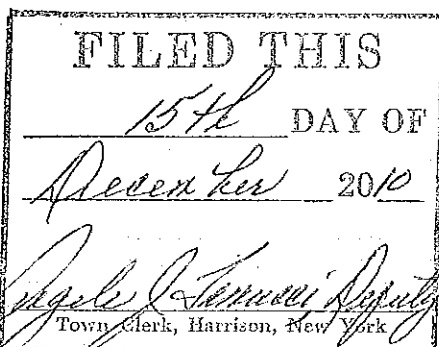 FILED THIS
15th DAY OF
December 2010
Deputy
Town Clerk, Harrison, New York